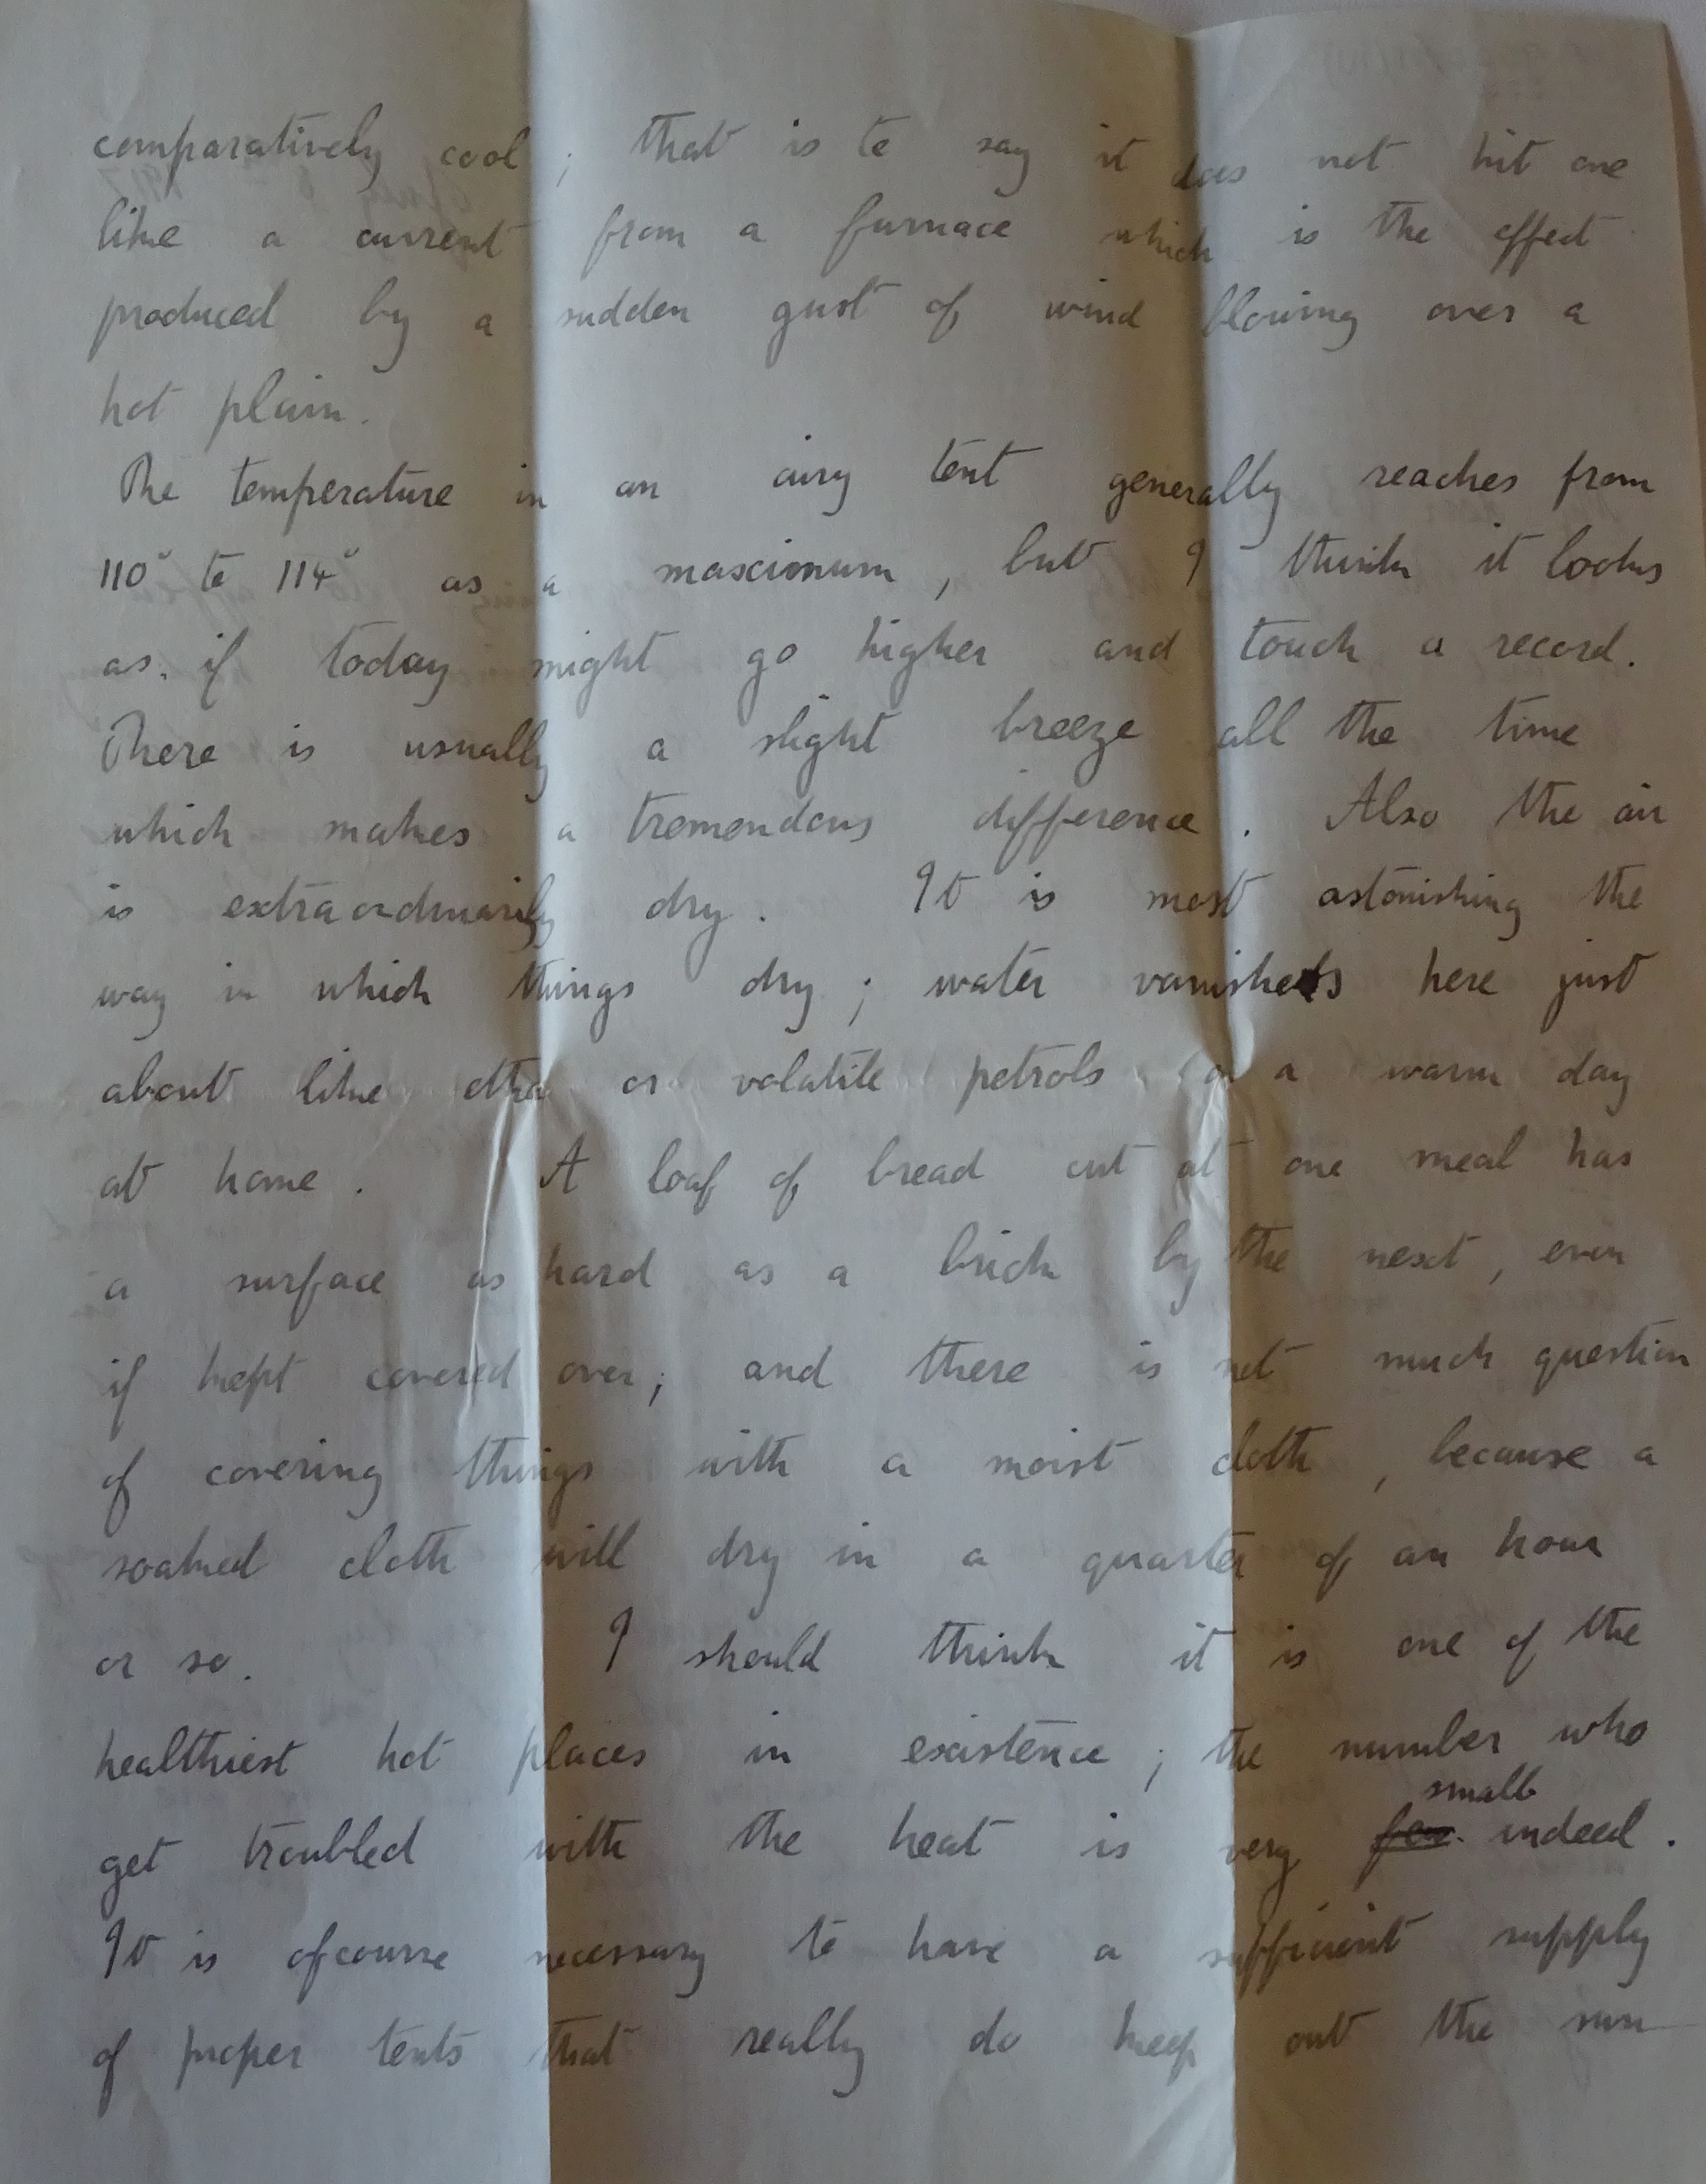 comparatively cool ; that is to say it does not hit one
like a current from a furnace which is the effect
produced by a sudden gust of wind blowing over a
hot plain.
The temperature in an airy tent generally reaches from
110° to 114° as a maximum , but I think it looks
as if today might go higher and touch a record.
There is usually a slight breeze all the time
which makes a tremendous difference . Also the air
is extraordinarily dry . It is most astonishing the
way in which things dry ; water vanishes here just
about like ether or volatile petrols on a warm day
at home . A loaf of bread cut at one meal has
a surface as hard as a brick by the next , even
if kept covered over ; and there is not much question
of covering things with a moist cloth , because a
soaked cloth will dry in a quarter of an hour
or so . I should think it is one of the
healthiest hot places in existence ; the number who
small
get troubled with the heat is very few indeed .
It is ofcourse necessary to have a sufficient supply
of proper tents that really do keep out the sun